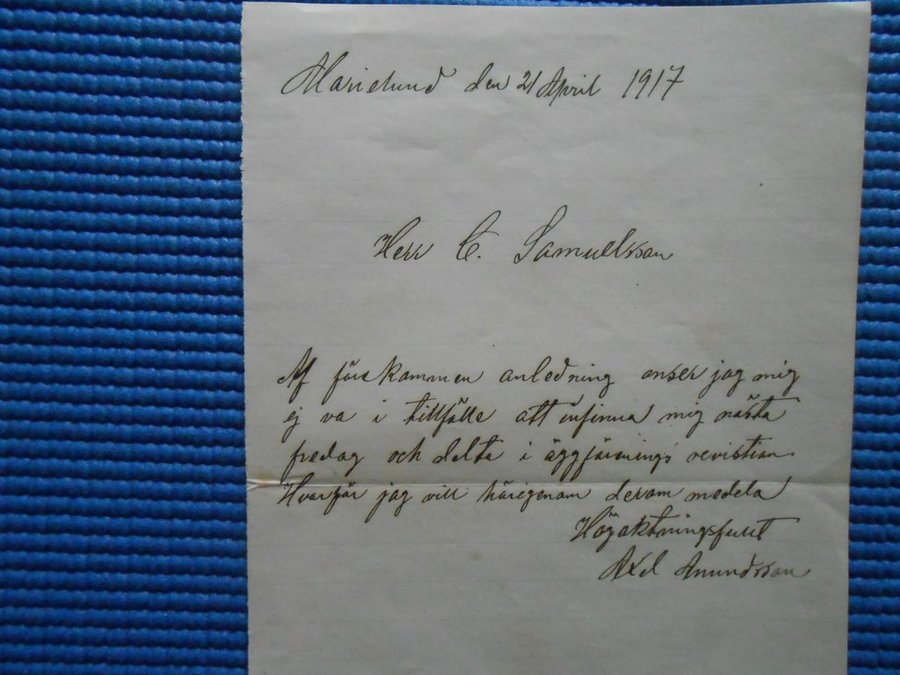 Marielund den 21 April 1917
Herr C. Samuelsson
Af förekommen anledning anser jag mig
ej va i tillfälle att infinna mig nästa
fredag och delta i
Hvarför jag vill härigenom derom medela
Högaktningsfullt
Axel Amundsson